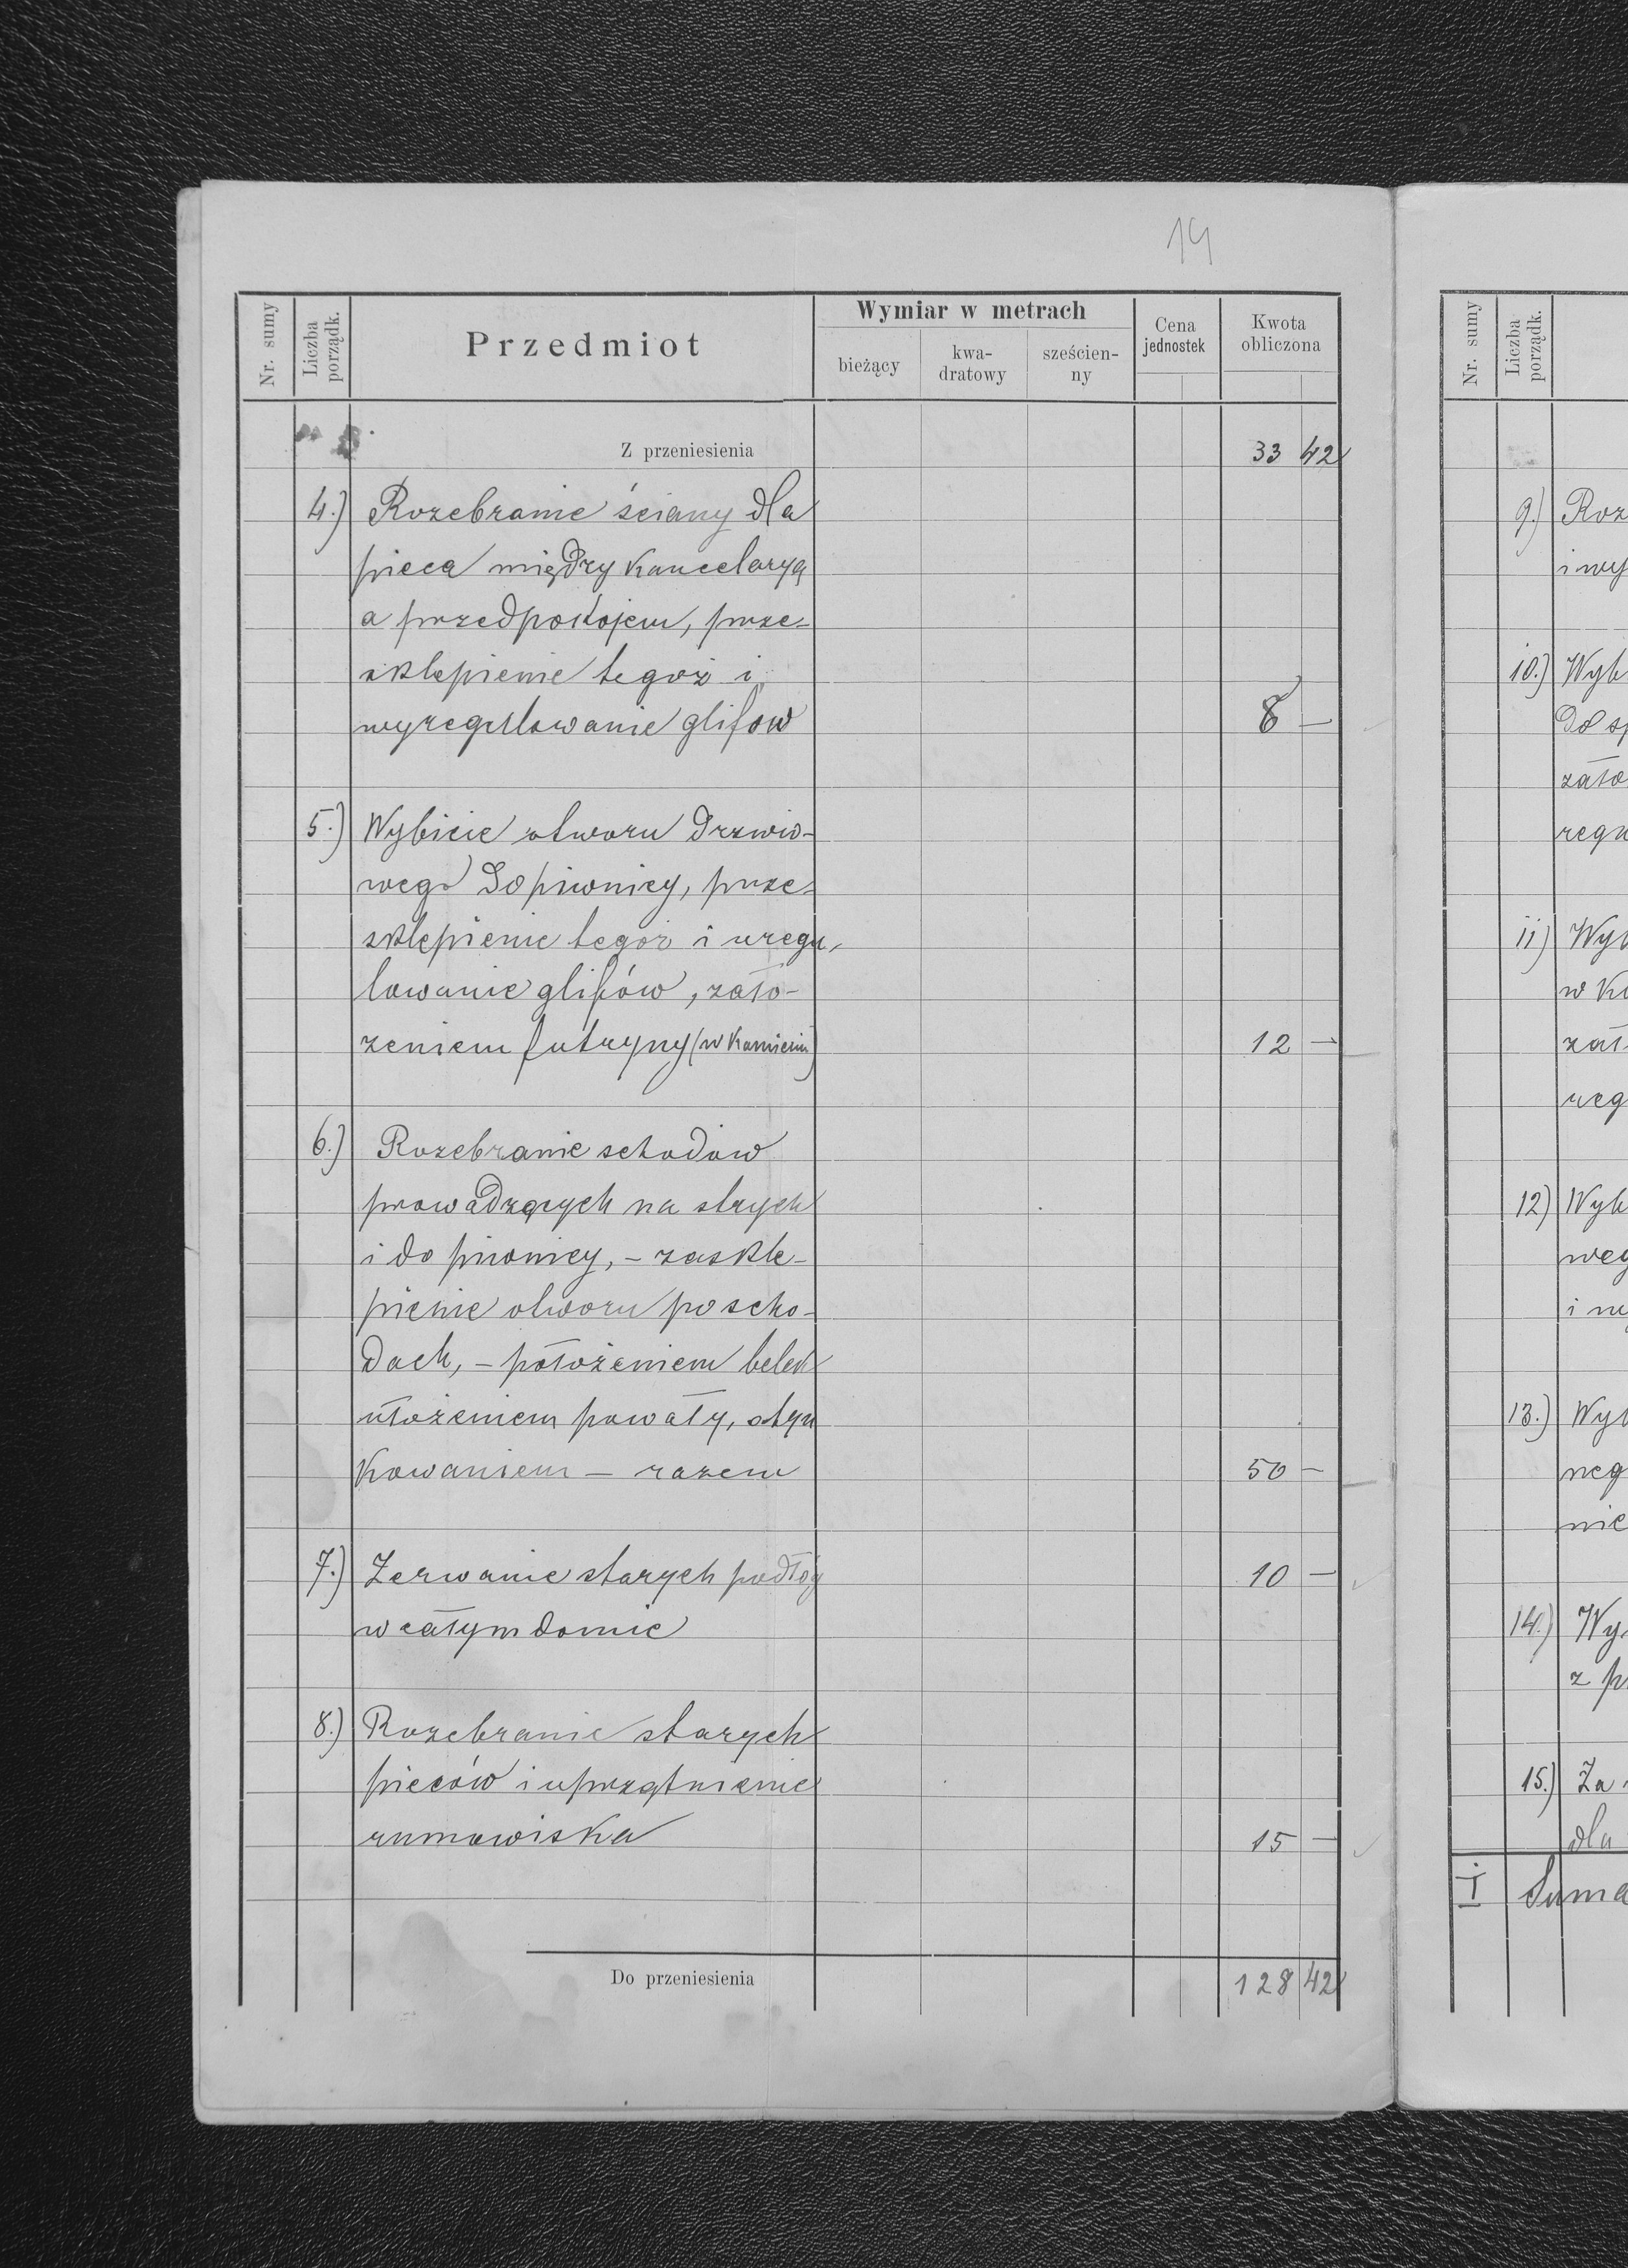 14
Nr. sumy
Liczba porządk.
Przedmiot
Wymiar w metrach
bieżący
kwa-
dratowy
sześcien-
ny
Cena
jednostek
Kwota
obliczona
Z przeniesienia 33 42
4.) Rozebranie ściany dla
pieca między kancelaryą
a przedpokojem, prze-
sklepienie tegoż i
wyregulowanie glifow 8 —
5.) Wybicie otworu drzwio-
wego do piwnicy, prze-
sklepienie tegoż i uregu-
lowanie glifów, zało-
zeniem futryny (w kamieniu) 12 —
6.) Rozebranie schodow
prowadzących na strych
i do piwnicy, – zaskle-
pienie otworu po scho-
dach, – położeniem belek
ułożeniem powały, otyn
kowaniem — razem 50 —
7.) Zerwanie starych podłóg 10 —
w całym domie
8.) Rozebranie starych
pieców i uprzątnienie
rumowiska 15 —
Do przeniesienia 128 42
Nr. sumy
Liczba porządk.
9.) Roz
i wy
10.) Wyb
do sp
zało
regu
11) Wyb
w ka
zał
ureg
12) Wyb
weg
i
13.) Wyb
neg
nie
14.) Wy
z p
15.) Za
dla
I Suma